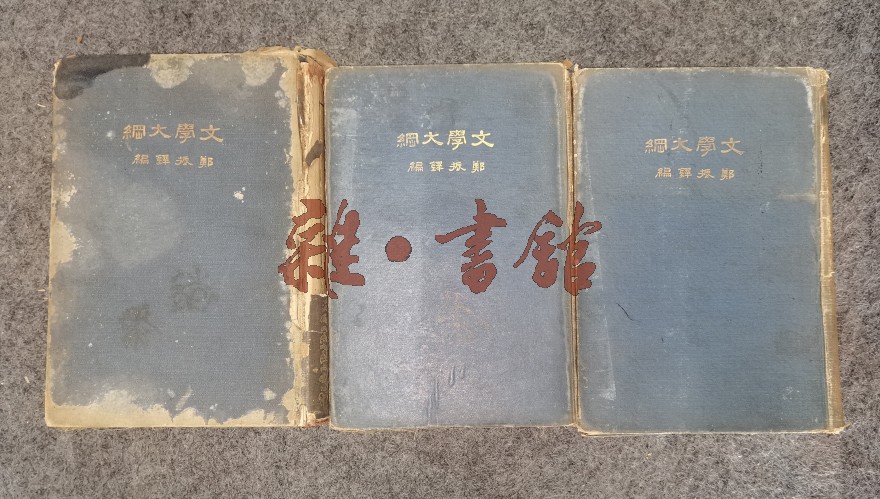 文學大綱
鄭振鐸編
文學大綱
鄭振鐸編
文學大綱
鄭振鐸編
雜·書館